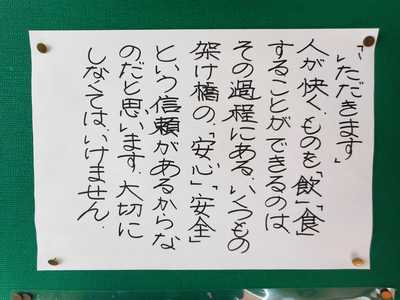 「いただきます」
人が快く、ものを「飲」「食」
することができるのは
その過程にある、いくつもの
架け橋の、「安心」「安全」
という信頼があるからな
のだと思います。大切に
しなくてはいけません。